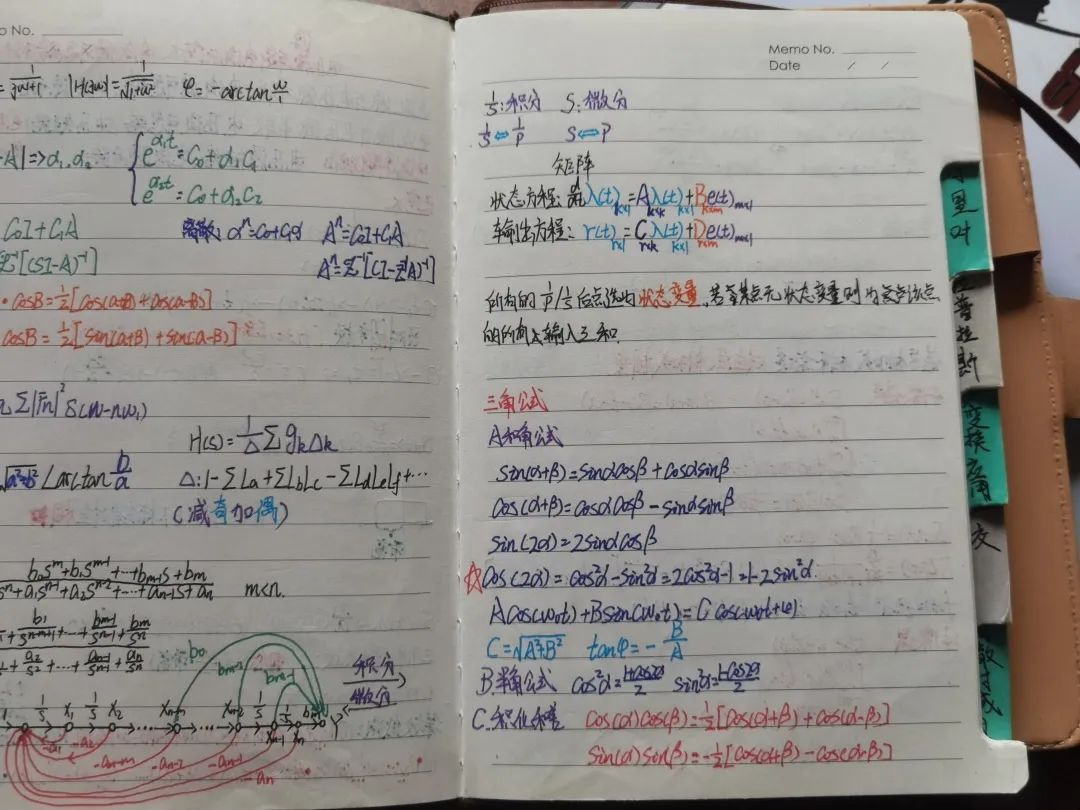 o No.
= 1/(jw+1) |H(jw)| = 1/√(1+w²) φ = -arctan w/1
-A| => α₁.α₂
e^{α₁t} = C₀+α₁C₁
e^{α₂t} = C₀+α₂C₂
C₀I+C₁A 离散: αⁿ=C₀+C₁α Aⁿ=C₀I+C₁A
ℒ⁻¹[(SI-A)⁻¹] Aⁿ=Z⁻¹[(I-Z⁻¹A)⁻¹]
·cosB = 1/2[cos(α+B)+cos(α-B)]
cosB = 1/2[sin(α+B)+sin(α-B)]
Σ|Fn|² δ(w-nw₁)
H(s) = 1/Δ Σ gkΔk
√(a²+b²) ∠arctan b/a Δ:1-ΣLa+ΣLbLc-ΣLdLeLf+···
(减奇加偶)
b₀s^m+b₁s^{m-1}+···+b_{m-1}s+b_m
s^n+a₁s^{n-1}+a₂s^{n-2}+···+a_{n-1}s+a_n m<n.
+ b₁/s^{n-m+1}+···+ b_{m-1}/s^{n-1} + b_m/s^n
+ a₂/s² +···+ a_{n-1}/s^{n-1} + a_n/s^n
b₀
b_{m-2}
b_{m-1}
b_m
积分
微分
1/s x₁ 1/s x₂ x_{n-m} x_{n-2} 1/s x_{n-1} 1/s x_n Y
-a₁ -a₂ -a_{n-m} -a_{n-2} -a_{n-1} -a_n
Memo No.
Date / /
1/s:积分 S:微分
1/s⇔1/p S⇔P
矩阵
状态方程: d/dt λ(t)k×1 = A k×k λ(t)k×1 + B k×m e(t)m×1
输出方程: r(t)r×1 = C r×k λ(t)k×1 + D r×m e(t)m×1
所有的 1/p / 1/s 后点选为状态变量,若某点无状态变量则为该点
的所有输入之和.
三角公式
A和角公式
sin(α+β)=sinαcosβ+cosαsinβ
cos(α+β)=cosαcosβ-sinαsinβ
sin(2α)=2sinαcosβ
☆cos(2α)=cos²α-sin²α=2cos²α-1=1-2sin²α.
Acos(w₀t)+Bsin(w₀t)=C cos(w₀t+φ)
C=√(A²+B²) tanφ=-B/A
B.半角公式 cos²α=(1+cos2α)/2 sin²α=(1-cos2α)/2
C.积化和差 cos(α)cos(β)=1/2[cos(α+β)+cos(α-β)]
sin(α)sin(β)=-1/2[cos(α+β)-cos(α-β)]
里叶
普拉斯
变换
友
散时域